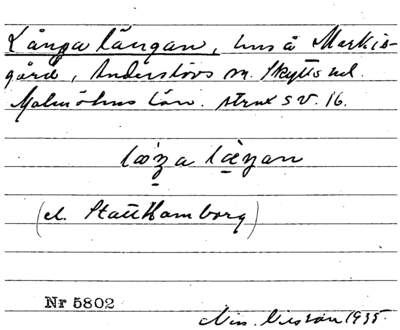 Långa längan, hus å Markie-
gård, Anderslövs sn. Skytts hd.
Malmöhus län. strax s v. 16.
(el. Statthamborg)
Nr 5802
Nils. Nilsson 1935